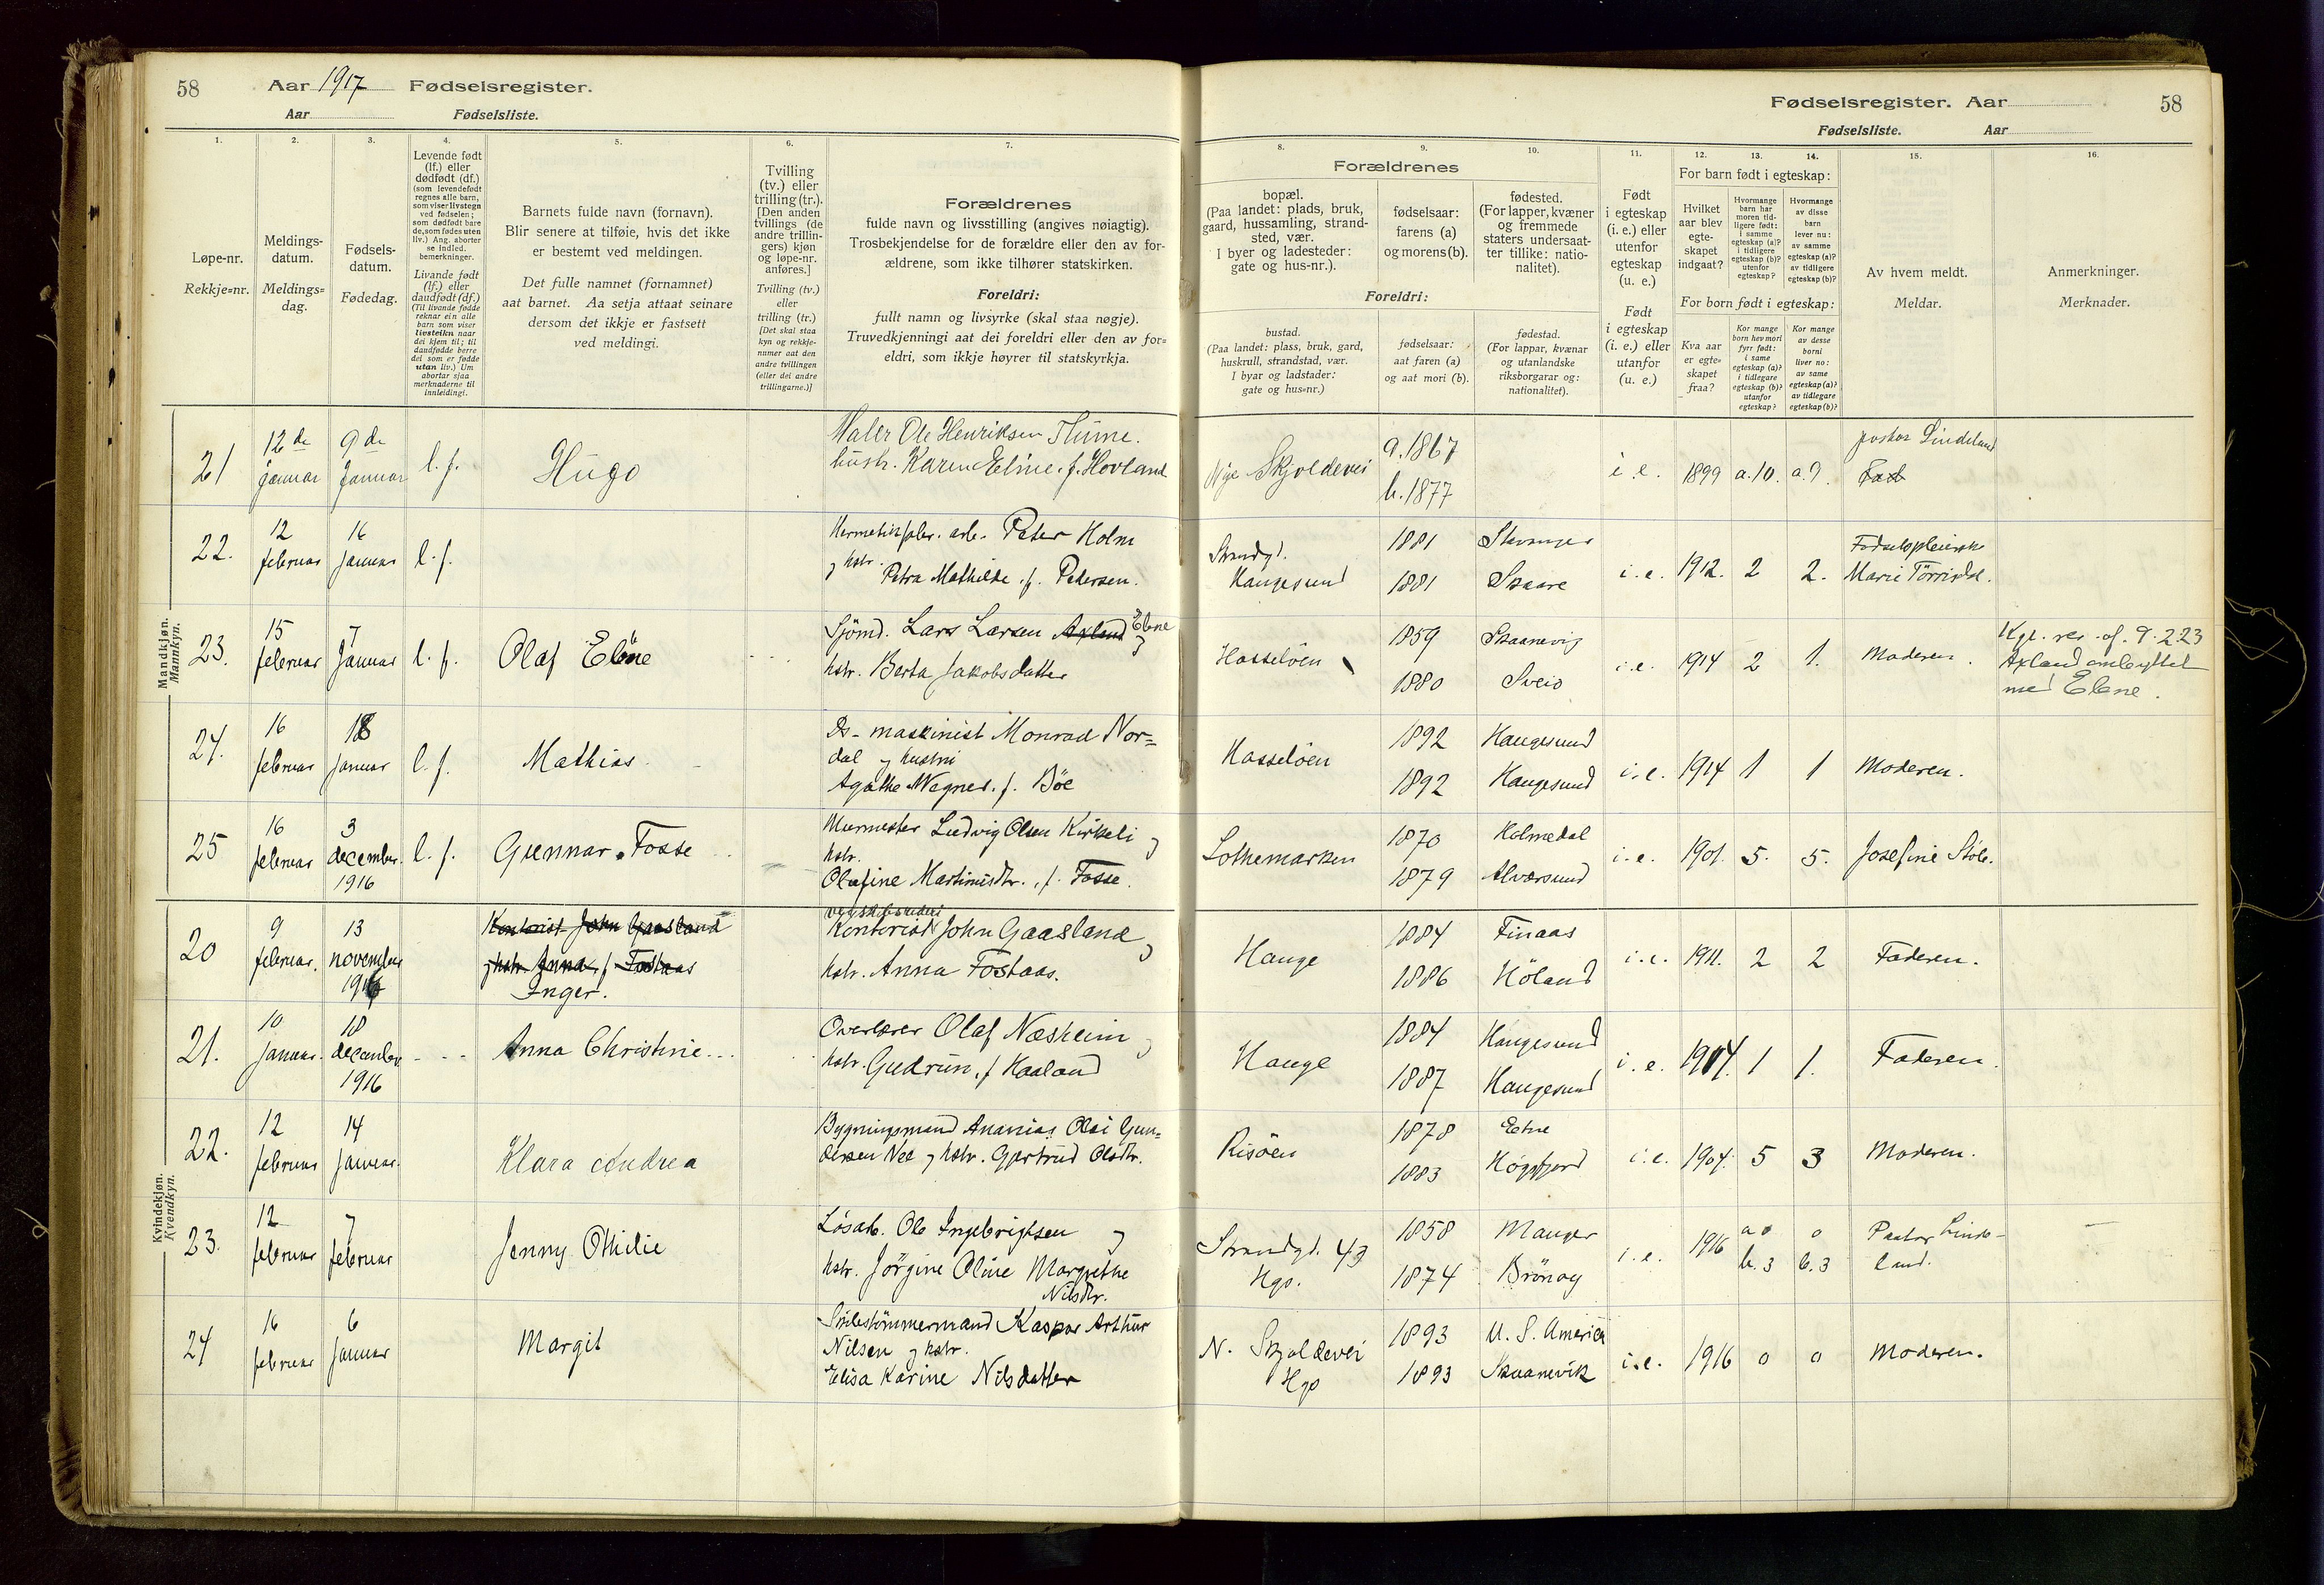 58 Aar 1917 Fødselsregister.
Aar Fødselsliste.
1. 2. 3. 4. 5. 6. 7.
Løpe-nr.
Rekkje-nr.
Meldings-
datum.
Meldings-
dag.
Fødsels-
datum.
Fødedag.
Levende født
(lf.) eller
dødfødt (df.)
(som levendefødt
regnes alle barn,
som viser livstegn
ved fødselen;
som dødfødt bare
de, som fødes uten
liv.) Ang. aborter
se indled.
bemerkninger.
Livande født
(lf.) eller
daudfødt (df.)
(Til livande fødde
reknar ein alle
barn som viser
livsteikn naar
dei kjem til; til
daudfødde berre
dei som er fødde
utan liv.) Um
abortar sjaa
merknaderne til
innleidingi.
Barnets fulde navn (fornavn).
Blir senere at tilføie, hvis det ikke
er bestemt ved meldingen.
Det fulle namnet (fornamnet)
aat barnet. Aa setja attaat seinare
dersom det ikkje er fastsett
ved meldingi.
Tvilling
(tv.) eller
trilling (tr.).
[Den anden
tvillings (de
andre trillin-
gers) kjøn
og løpe-nr.
anføres.]
Tvilling (tv.)
eller
trilling (tr.)
[Det skal staa
kyn og rekkje-
numer aat den
andre tvillingen
(eller dei andre
trillingarne.)]
Forældrenes
fulde navn og livsstilling (angives nøiagtig).
Trosbekjendelse for de forældre eller den av for-
ældrene, som ikke tilhører statskirken.
Foreldri:
fullt namn og livsyrke (skal staa nøgje).
Truvedkjenningi aat dei foreldri eller den av for-
eldri, som ikkje høyrer til statskyrkja.
Fødselsregister. Aar 58
Fødselsliste. Aar
8. 9. 10. 11. 12. 13. 14. 15. 16.
Forældrenes
bopæl.
(Paa landet: plads, bruk,
gaard, hussamling, strand-
sted, vær.
I byer og ladesteder:
gate og hus-nr.).
fødselsaar:
farens (a)
og morens (b).
fødested.
(For lapper, kvæner
og fremmede
staters undersaat-
ter tillike: natio-
nalitet).
Foreldri:
bustad.
(Paa landet: plass, bruk, gard,
huskrull, strandstad, vær.
I byar og ladstader:
gate og hus-nr.)
fødselsaar:
aat faren (a)
og aat mori (b).
fødestad.
(For lappar, kvænar
og utanlandske
riksborgarar og:
nationalitet).
Født
i egteskap
(i. e.) eller
utenfor
egteskap
(u. e.)
Født
i egteskap
(i. e.) eller
utanfor
egteskap
(u. e.)
For barn født i egteskap:
Hvilket
aar blev
egte-
skapet
indgaat?
Hvormange
barn har
moren tid-
ligere født:
i samme
egteskap (a)?
i tidligere
egteskap (b)?
utenfor
egteskap?
Hvormange
av disse
barn
lever nu:
av samme
egteskap (a)?
av tidligere
egteskap (b)?
For born født i egteskap:
Kva aar
er egte-
skapet
fraa?
Kor mange
born hev mori
fyrr født:
i same
egteskap (a)?
i tidlegare
egteskap (b)?
utanfor
egteskap?
Kor mange
av desse
borni
liver no:
av same
egteskap (a)?
av tidlegare
egteskap (b)?
Av hvem meldt.
Meldar.
Anmerkninger.
Merknader.
Mandkjøn.
Mannkyn.
21 12de januar 9de Januar l. f. Hugo
Maler Ole Henriksen
hustr. Karen Eline f. Hovland
Nye Skjoldevei a. 1867
b. 1877
i. e. 1899 a. 10. a. 9. pastor Lindeland
22. 12 februar 16 januar l. f.
arb. Peter Holm
og hstr. Petra Mathilde f. Pedersen.
Strandgt.
Haugesund
1881 Stavanger
1881 Skaare
i. e. 1912. 2 2.
Fødselspleierske
Marie
23. 15 februar 7 Januar l. f. Olaf Elene
Sjömd. Lars Larsen Axland Elene og
hstr. Berta Jakobsdatter
Hasseløen
1859 Skaanevig
1880 Sveio
i. e. 1914 2 1. Moderen.
Kgl. res. af 9.2.23
Axland ombyttet
med Elene.
24. 16 februar 18 januar l. f. Mathias
Ds-maskinist Monrad Nor=
dal og hustru
Agathe Wegner f. Böe
Hasselöen
1892 Haugesund
1892 Haugesund
i. e. 1914 1 1 Moderen.
25 16 februar 3 december 1916 l. f. Gunnar Fosse
Murmester Ludvig Olsen Kirkeli og
hstr.
Olufine Martinusdtr. f. Fosse.
Lothemarken
1870 Holmedal
1879 Alversund
i. e. 1901. 5. 5. Josefine
Kvindekjøn.
Kvendkyn.
20 9 februar. 13 november 1916
Kontorist John Gaasland
og hstr. Anna f. Fostaas
Inger.
Kontorist John Gaasland og
hstr. Anna Fostaas.
Hauge
1884 Finaas
1886 Höland
i. e. 1911. 2 2 Faderen.
21. 10 Januar. 18 december 1916 Anna Christine
Overlærer Olaf Næsheim og
hstr. Gudrun f Haaland
Hauge
1884 Haugesund
1887 Haugesund
i. e. 1914. 1 1. Faderen.
22. 12 februar 14 januar. Klara Andrea
Bygningsmand Ananias Olai Gun=
dersen Nee og hstr. Gjertrud Olsdtr.
Risöen
1878 Etne
1883 Högsfjord
i. e. 1904. 5 3 Moderen.
23. 12 februar 7 februar Jenny Othilie
Lösarb. Ole Ingebrigtsen og
hstr. Jörgine Oline Margrethe
Nilsdtr.
Strandgt. 43
Hgs.
1858 Manger
1874 Brönöy
i. e. 1916 a 0 0
b. 3 b. 3
Pastor Linde-
land.
24 16 februar 6 Januar Margit
Skibstömmermand Kaspar Arthur
Nilsen og hstr.
Elisa Karine Nilsdatter
N. Skjoldevei
Hgs
1893 U. S. America
1893 Skaanevik
i. e. 1916 0 0 Moderen.